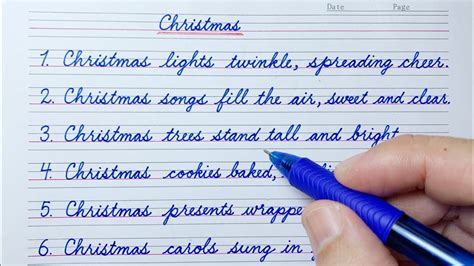 Date Page
Christmas
1. Christmas lights twinkle, spreading cheer.
2. Christmas songs fill the air, sweet and clear.
3. Christmas trees stand tall and bright
4. Christmas cookies baked,
5. Christmas presents wrappe
6. Christmas carols sung in